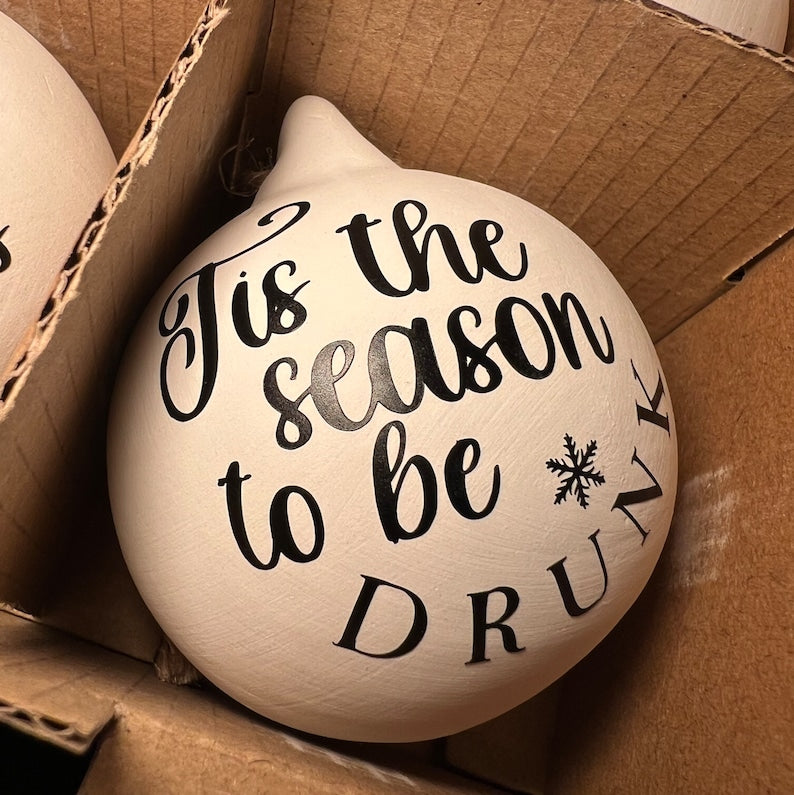 'Tis the
season
to be
DRUNK